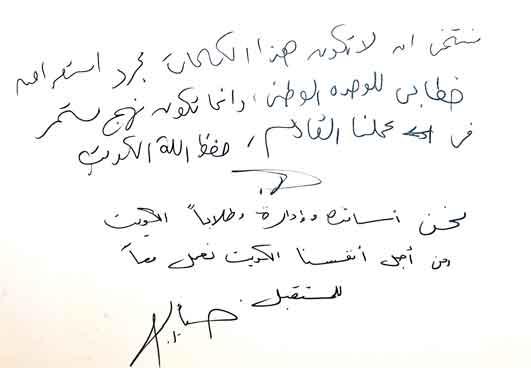 نتمنى ان لا تكون هذا الكلمات مجرد استعراض
خطابي للوحده الوطنيه، وانما تكون نهج مستمر
في عملنا القادم، حفظ الله الكويت
نحن أساتذة وإدارة وطلاباً الكويت
ومن أجل أنفسنا الكويت نعمل معاً
للمستقبل.